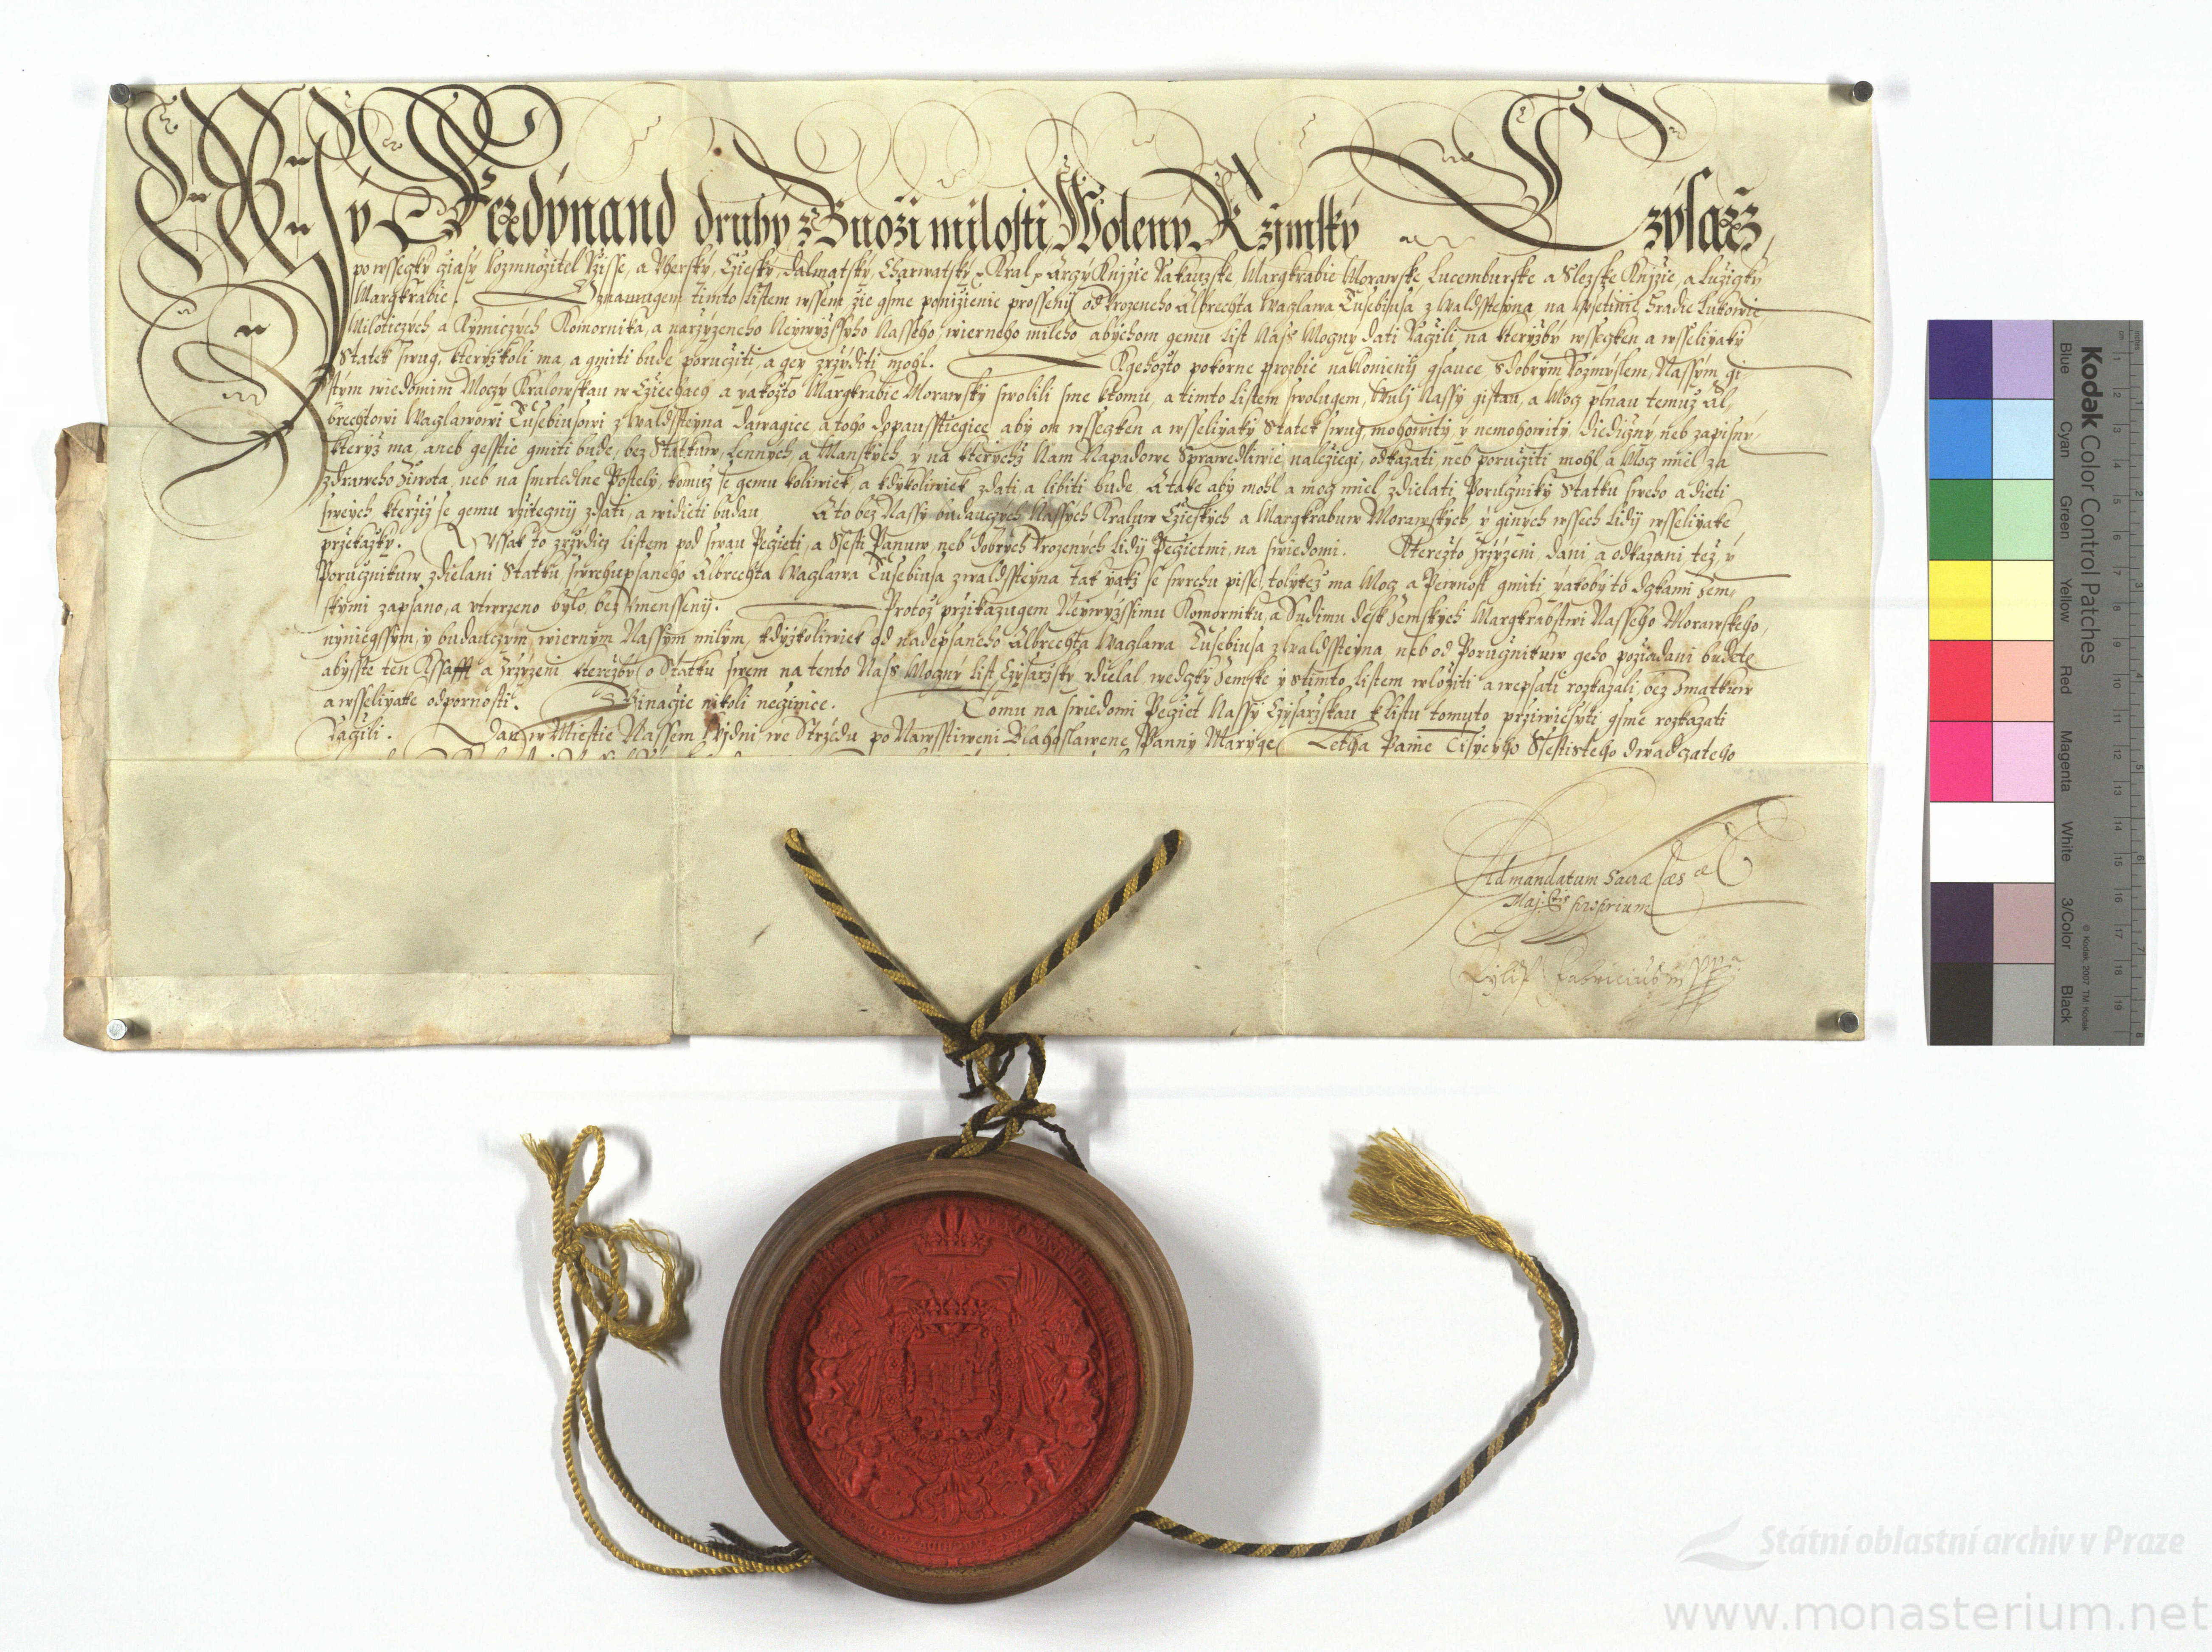 My Ferdynand druhy z Buozi milosti Woleny Rzimsky Czysarz,
po wsseczky cziasy Rozmnozitel Rzisse, a Vhersky, Cziesky, Dalmatsky, Charwatsky Kral Arczy Knizie Rakauzske, Margkrabie Morawske, Lucemburske a Slezske Knizie, a Luziczky
Margkrabie. Oznamugem timto Listem wssem zie gsme ponizienie prosseny od Vrozeneho Albrechta Waczlawa Eusebiusa z Waldssteyna na Wsetinie Hradie Lukowie
Miloticzych a Rymiczych Komornika, a narzyzeneho Neywyzssyho Nasseho, wierneho mileho abychom gemu List Nass Moczny dati Raczili, na kteryzby wsseczken a wsseliyaky
Statek swug, kteryzkoli ma, a gmiti bude poruczyti, a gey zrzyditi mohl. Kgehozto pokorne prozbie naklonieny gsaucze, s dobrym Rozmyslem, Nassym gi
stym wiedomim Moczy Kralowskau w Cziechach a yakozto Margkrabie Morawsky swolili sme ktomu, a timto Listem swolugem, Wuly Nassy gistau, a Mocz plnau temuz Al-
brechtowi Waczlawowi Eusebiusowi z Waldssteyna dawagicze a toho dopausstiegicze aby on wsseczken a wsseliyaky Statek swug, mohowity, y nemohowity, diediczny, neb zapisny,
kteryz ma, aneb gesstie gmiti bude, bez Statkuw Lennych a Manskych y na kterychz Nam Napadowe Sprawedliwie nalezegi, odkazati, neb porucziti mohl a Mocz miel za
zdraweho ziwota, neb na smrtedlne Postely, komuz se gemu koliwiek, a kdykoliwiek zdati, a libiti bude. A take aby mohl a mocz miel zdielati Poruczniky Statku sweho a dieti
sweych kterziz se gemu vzitecznij zdati, a widieti budau A to bez Nassy budauczych Nassych Kraluw Czieskych a Margkrabuw Morawskych, y ginych wssech Lidij wsseliyake
przekazky. A wssak to zrzydicz listem pod swau Peczieti, a Ssesti Panuw, neb dobrych Vrozenych Lidij Peczietmi, na swiedomi. Kterezto Zrzyzeni, dani, a odkazani tez, y
Porucznikuw zdielani Statku swrchupsaneho Albrechta Waczlawa Eusebiusa z Waldssteyna tak yakz se swrchu pisse, tolykez ma Mocz a Pewnost gmiti yakoby to dskami Zem-
skymi zapsano, a vtwrzeno bylo, bez Zmenssenij. Protoz przikazugem Neywyzssimu Komorniku, a Sudimu desk Zemskych Margkrabstwi Nasseho Morawskeho,
nyniegssym, y budauczym, wiernym Nassym milym, kdyzkoliwiek od nadepsaneho Albrechta Waczlawa Eusebiusa z Waldssteyna, neb od Porucznikuw geho pozadani budete
abysste ten Kssafft a Zrzyzeni kterezby o Statku swem na tento Nass Moczny list Czysarzsky vdielal we dsky Zemske y stimto listem wloziti a wepsati rozkazali, bez zmatkuw
a wsseliyake odpornosti. Ginaczie nikoli necziniecze. Tomu na swiedomi Peczet Nassy Czysarzskau k listu tomuto przywiesyti gsme rozkazati
Raczili. Dan w Miestie Nassem Wijdni, we Strzedu po Nawsstiweni Blahoslawene Panny Maryge Letha Panie Tisyczyho Ssestisteho dwadczateho
Ad mandatum Sacrae Caes ae
Maj: tis proprium
Fabricius
Kodak Color Control Patches
Blue Cyan Green Yellow Red Magenta White 3/Color Black
© Kodak, 2007 TM: Kodak
cm 1 2 3 4 5 6 7 8 9 10 11 12 13 14 15 16 17 18 19
inches 1 2 3 4 5 6 7 8
Státní oblastní archiv v Praze
www.monasterium.net